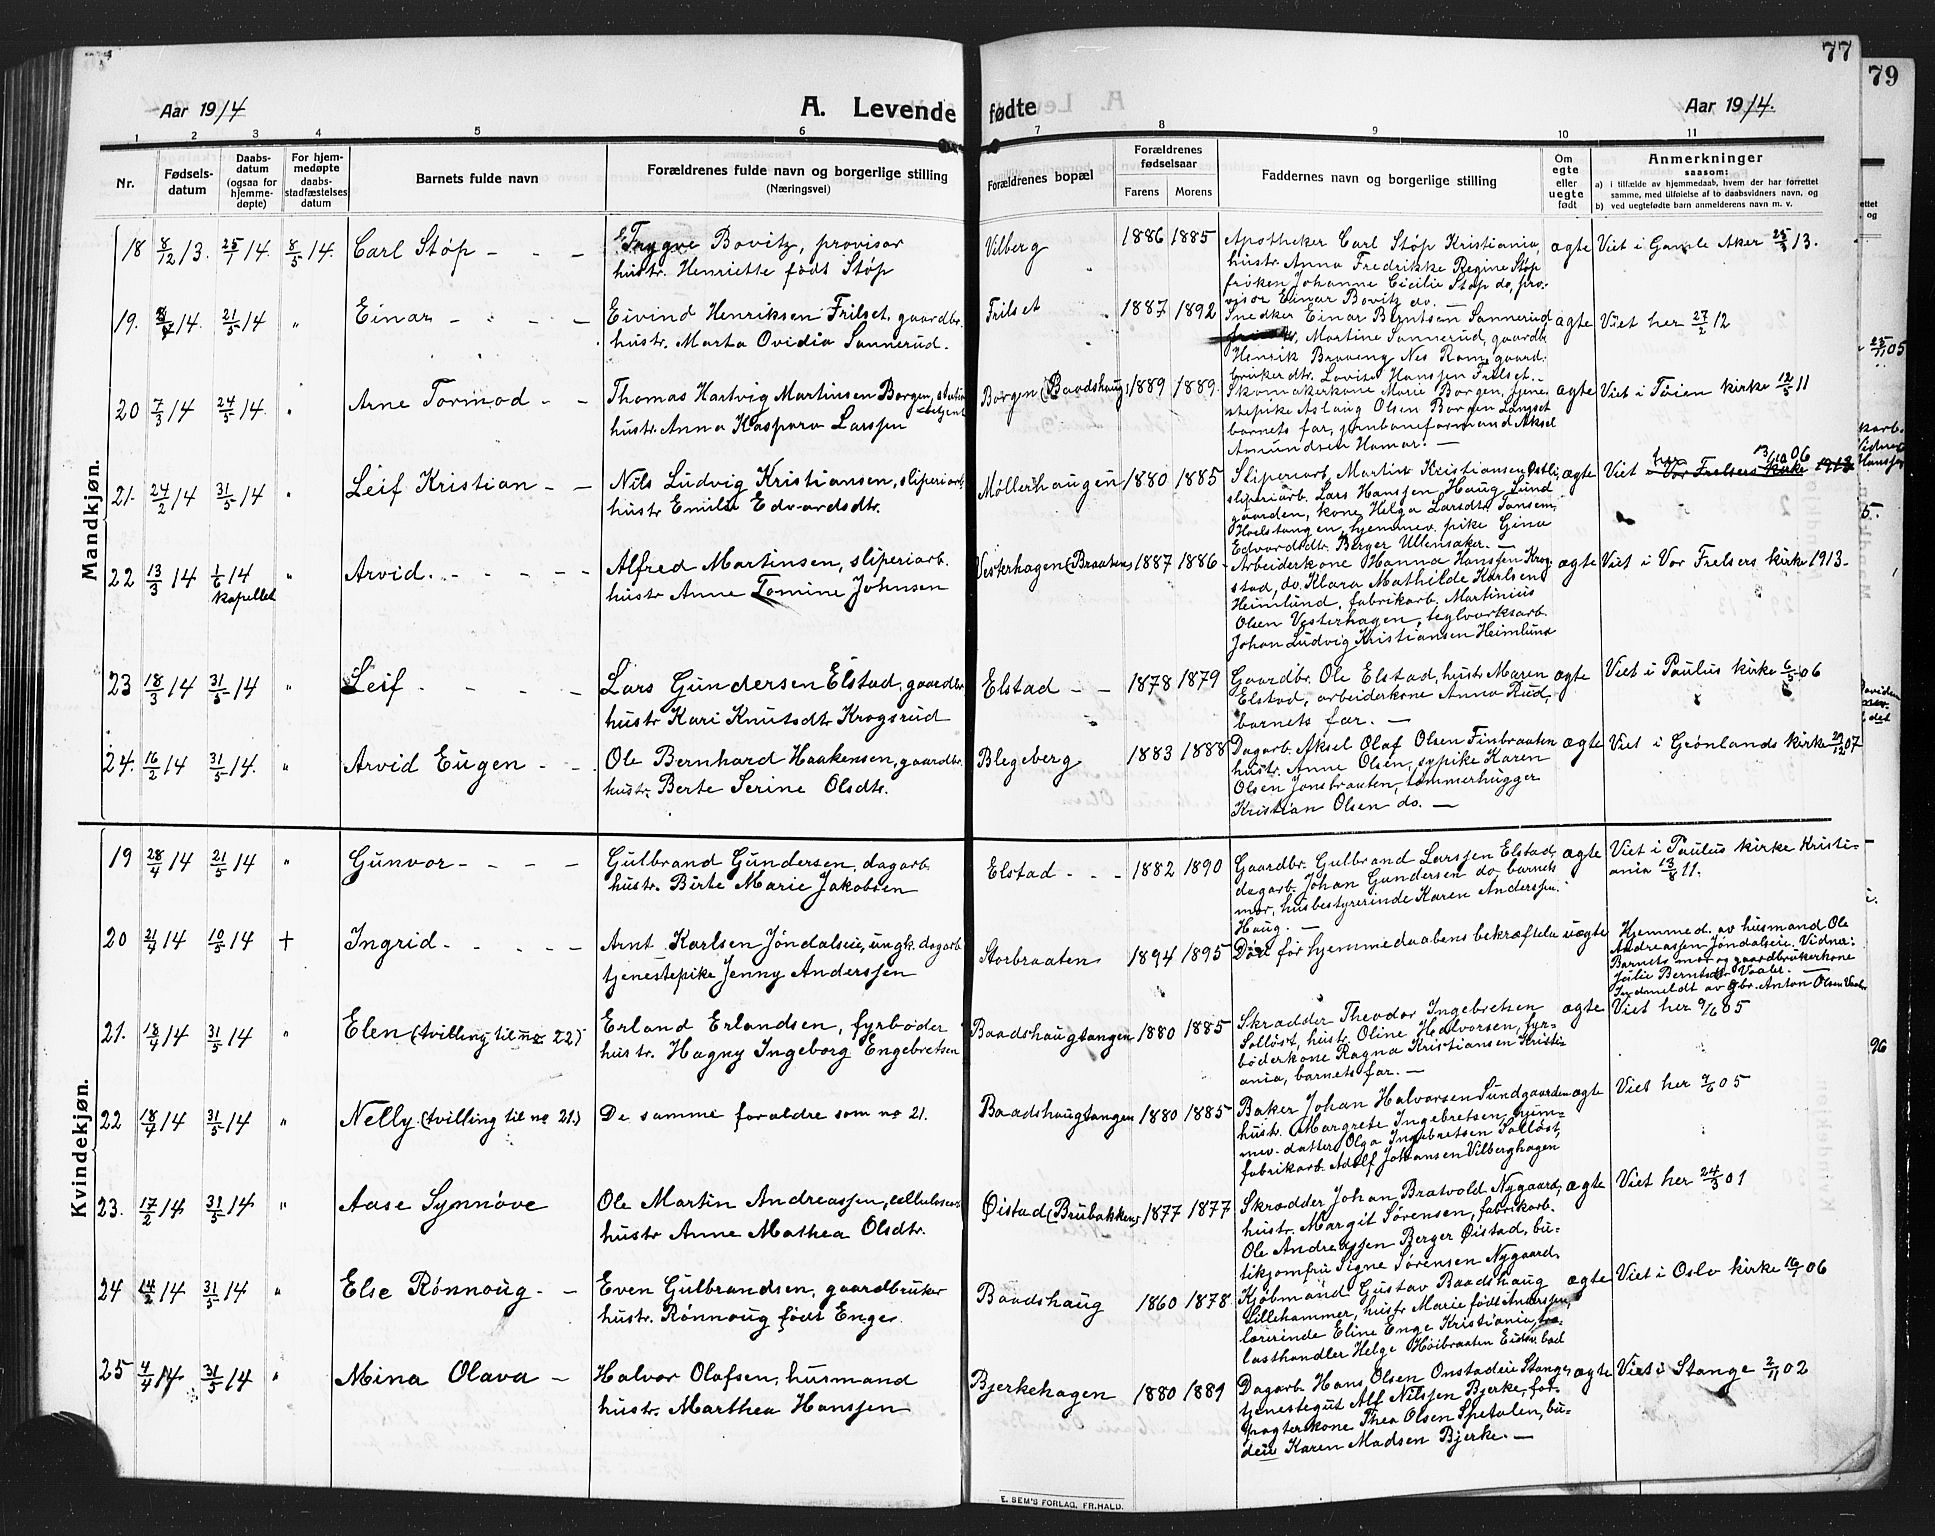 77
79
Aar 1914
A. Levende fødte
Aar 1914.
1 2 3 4 5 6 7 8 9 10 11
Nr.
Fødsels-
datum
Daabs-
datum
(ogsaa for
hjemme-
døpte)
For hjem-
medøpte
daabs-
stadfæstelses
datum
Barnets fulde navn
Forældrenes fulde navn og borgerlige stilling
(Næringsvei)
Forældrenes bopæl
Forældrenes
fødselsaar
Farens Morens
Faddernes navn og borgerlige stilling
Om
egte
eller
uegte
født
Anmerkninger
saasom:
a) i tilfælde av hjemmedaab, hvem der har forrettet
samme, med tilføielse af to daabsvidners navn, og
b) ved uegtefødte barn anmelderens navn m. v.
Mandkjøn.
18 8/12 13. 25/1 14. 8/5 14. Carl Støp - - -
Trygve Bovitz, provisor
hustr. Henriette født Støp
Vilberg 1886 1885
Apotheker Carl Støp Kristiania,
hustr. Anna Fredrikke Regine Støp
frøken Johanne Cicilie Støp do, pro-
visor Einar Bovitz do. —
ægte Viet i Gamle Aker 25/3 13.
19. 14. 21/5 14 " Einar - - - -
Eivind Henriksen Frilset, gaardbr.
hustr. Marta Ovidia Sannerud.
Frilset 1887 1892
Snedker Einar Berntsen Sannerud,
Martine Sannerud, gaardbr.
Henrik Braaeng Nes Rom, gaard-
bruker dtr. Lovise Hansen Frilset. —
ægte Viet her 27/2 12
20 7/3 14 24/5 14. " Arne Tormod - -
Thomas Hartvig Martinsen Borgen, stations-
betjent
hustr. Anna Kaspara Larssen
Borgen (Baadshaug) 1889 1889.
Skomakerkone Marie Borgen, tjene-
stepike Aslaug Olsen Borgen Langset
barnets far, jernbaneformand Aksel
Amundsen Hamar. —
ægte Viet i Tøien kirke 12/5 11
21. 24/2 14 31/5 14 " Leif Kristian - -
Nils Ludvig Kristiansen, sliperiarb.
hustr Emilie Edvardsdtr.
Møllerhaugen 1880 1885
Sliperiarb. Martin Kristiansen Østli,
sliperiarb. Lars Hanssen Haug Lund
gaarden, kone Helga Larsdtr Tansem,
Holstangen, hjemmev. pike Gina
Edvardsdtr. Berger Ullensaker. —
ægte Viet her Vor Frelsers kirke 1913 13/10 06
22 13/3 14 1/6 14
kapellet " Arvid. - - - -
Alfred Martinsen, sliperiarb.
hustr Anne Tomine Johnsen
Vesterhagen (Braaten) 1887 1886
Arbeiderkone Hanna Hanssen Krog-
stad, do. Klara Mathilde Karlsen
Heimlund, fabrikarb. Martinius
Olsen Vesterhagen, teglverksarb.
Johan Ludvig Kristiansen Heimlund
ægte Viet i Vor Frelsers kirke 1913.
23 18/3 14 31/5 14 " Leif - - - -
Lars Gundersen Elstad, gaardbr.
hustr Kari Knutsdtr Krogsrud
Elstad - - 1878 1879
Gaardbr. Ole Elstad, hustr. Maren
Elstad, arbeiderkone Anna Rud,
barnets far. —
ægte Viet i Paulus kirke 6/5 06
24. 16/2 14 31/5 14. " Arvid Eugen - -
Ole Bernhard Haakensen, gaardbr.
hustr. Berte Serine Olsdtr.
Blegeberg 1883 1888
Dagarb. Aksel Olaf Olsen Finbraaten
hustr. Anne Olsen, sypike Karen
Olsen Jonsbraaten, tømmerhugger
Kristian Olsen do. —
ægte Viet i Grønlands kirke 29/12 07
Kvindekjøn.
19 28/4 14 21/5 14 " Gunvor - - - -
Gulbrand Gundersen, dagarb.
hustr. Birte Marie Jakobsen
Elstad - - - 1882 1890
Gaardbr. Gulbrand Larssen Elstad,
dagarb. Johan Gundersen do, barnets
mor, husbestyrerinde Karen Anderssen
Haug. —
ægte Viet i Paulus kirke Kristi-
ania 13/8 11.
20 21/4 14 10/5 14 + Ingrid - - - - -
Arnt Karlsen Jøndalseie, ungk. dagarb
tjenestepike Jenny Anderssen
Storbraaten 1894 1895
Død før hjemmedaabens bekræftelse
uægte Hjemmed. av husmand Ole
Andreassen Jøndalseie. Vidner:
Barnets mor og gaardbrukerkone
Julie Berntsdtr Vaaler. —
Indmeldt av gbr. Anton Olsen Vaaler
21. 18/4 14 31/5 14 " Elen (tvilling til no. 22)
Erland Erlandsen, fyrbøder
hustr. Hagny Ingeborg Engebretsen
Baadshaugtangen 1880 1885
Skrædder Theodor Ingebretsen
Solløst, hustr. Oline Halvorsen, fyr-
bøderkone Ragna Kristiansen Kristi-
ania, barnets far. —
ægte Viet her 9/6 05
22 18/4 14 31/5 14 " Nelly (tvilling til no 21.)
De samme forældre som no 21.
Baadshaugtangen 1880 1885
Baker Johan Halvorsen Sundgaarden
hustr. Margrete Ingebretsen, hjem-
mev. datter Olga Ingebretsen Solløst,
fabrikarb. Adolf Johansen Vilberghagen
ægte Viet her 9/6 05
23. 17/2 14 31/5 14 " Aase Synnøve
Ole Martin Andreassen, cellulosearb.
hustr Anne Mathea Olsdtr.
Øistad (Brubakken) 1877 1877
Skrædder Johan Bratvold Nygaard,
hustr. Margit Sørensen, fabrikarb.
Ole Andreassen Berger Øistad, bu-
tikjomfru Signe Sørensen Nygaard
ægte Viet her 24/3 01
24 14/2 14 31/5 14 " Else Rønnoug - -
Even Gulbrandsen, gaardbruker
hustr. Rønnoug født Enge.
Baadshaug 1860 1878
Kjøbmand Gustav Baadshaug
Lillehammer, hustr Marie født Anderssen,
lærerinde Eline Enge Kristiania, tra-
lasthandler Helge Høibraaten Eidsv. bad
ægte Viet i Oslo kirke 16/1 06
25 4/4 14 31/5 14 " Mina Olava -
Halvor Olafsen, husmand
hustr. Marthea Hanssen
Bjerkehagen 1880 1881
Dagarb. Hans Olsen Onstadeie Stange,
tjenestegut Alf Nilssen Bjerke, for-
pagterkone Thea Olsen Spetalen, bu-
deie Karen Madsen Bjerke. —
ægte Viet i Stange 2/11 02
E. SEM'S FORLAG, FR.HALD.